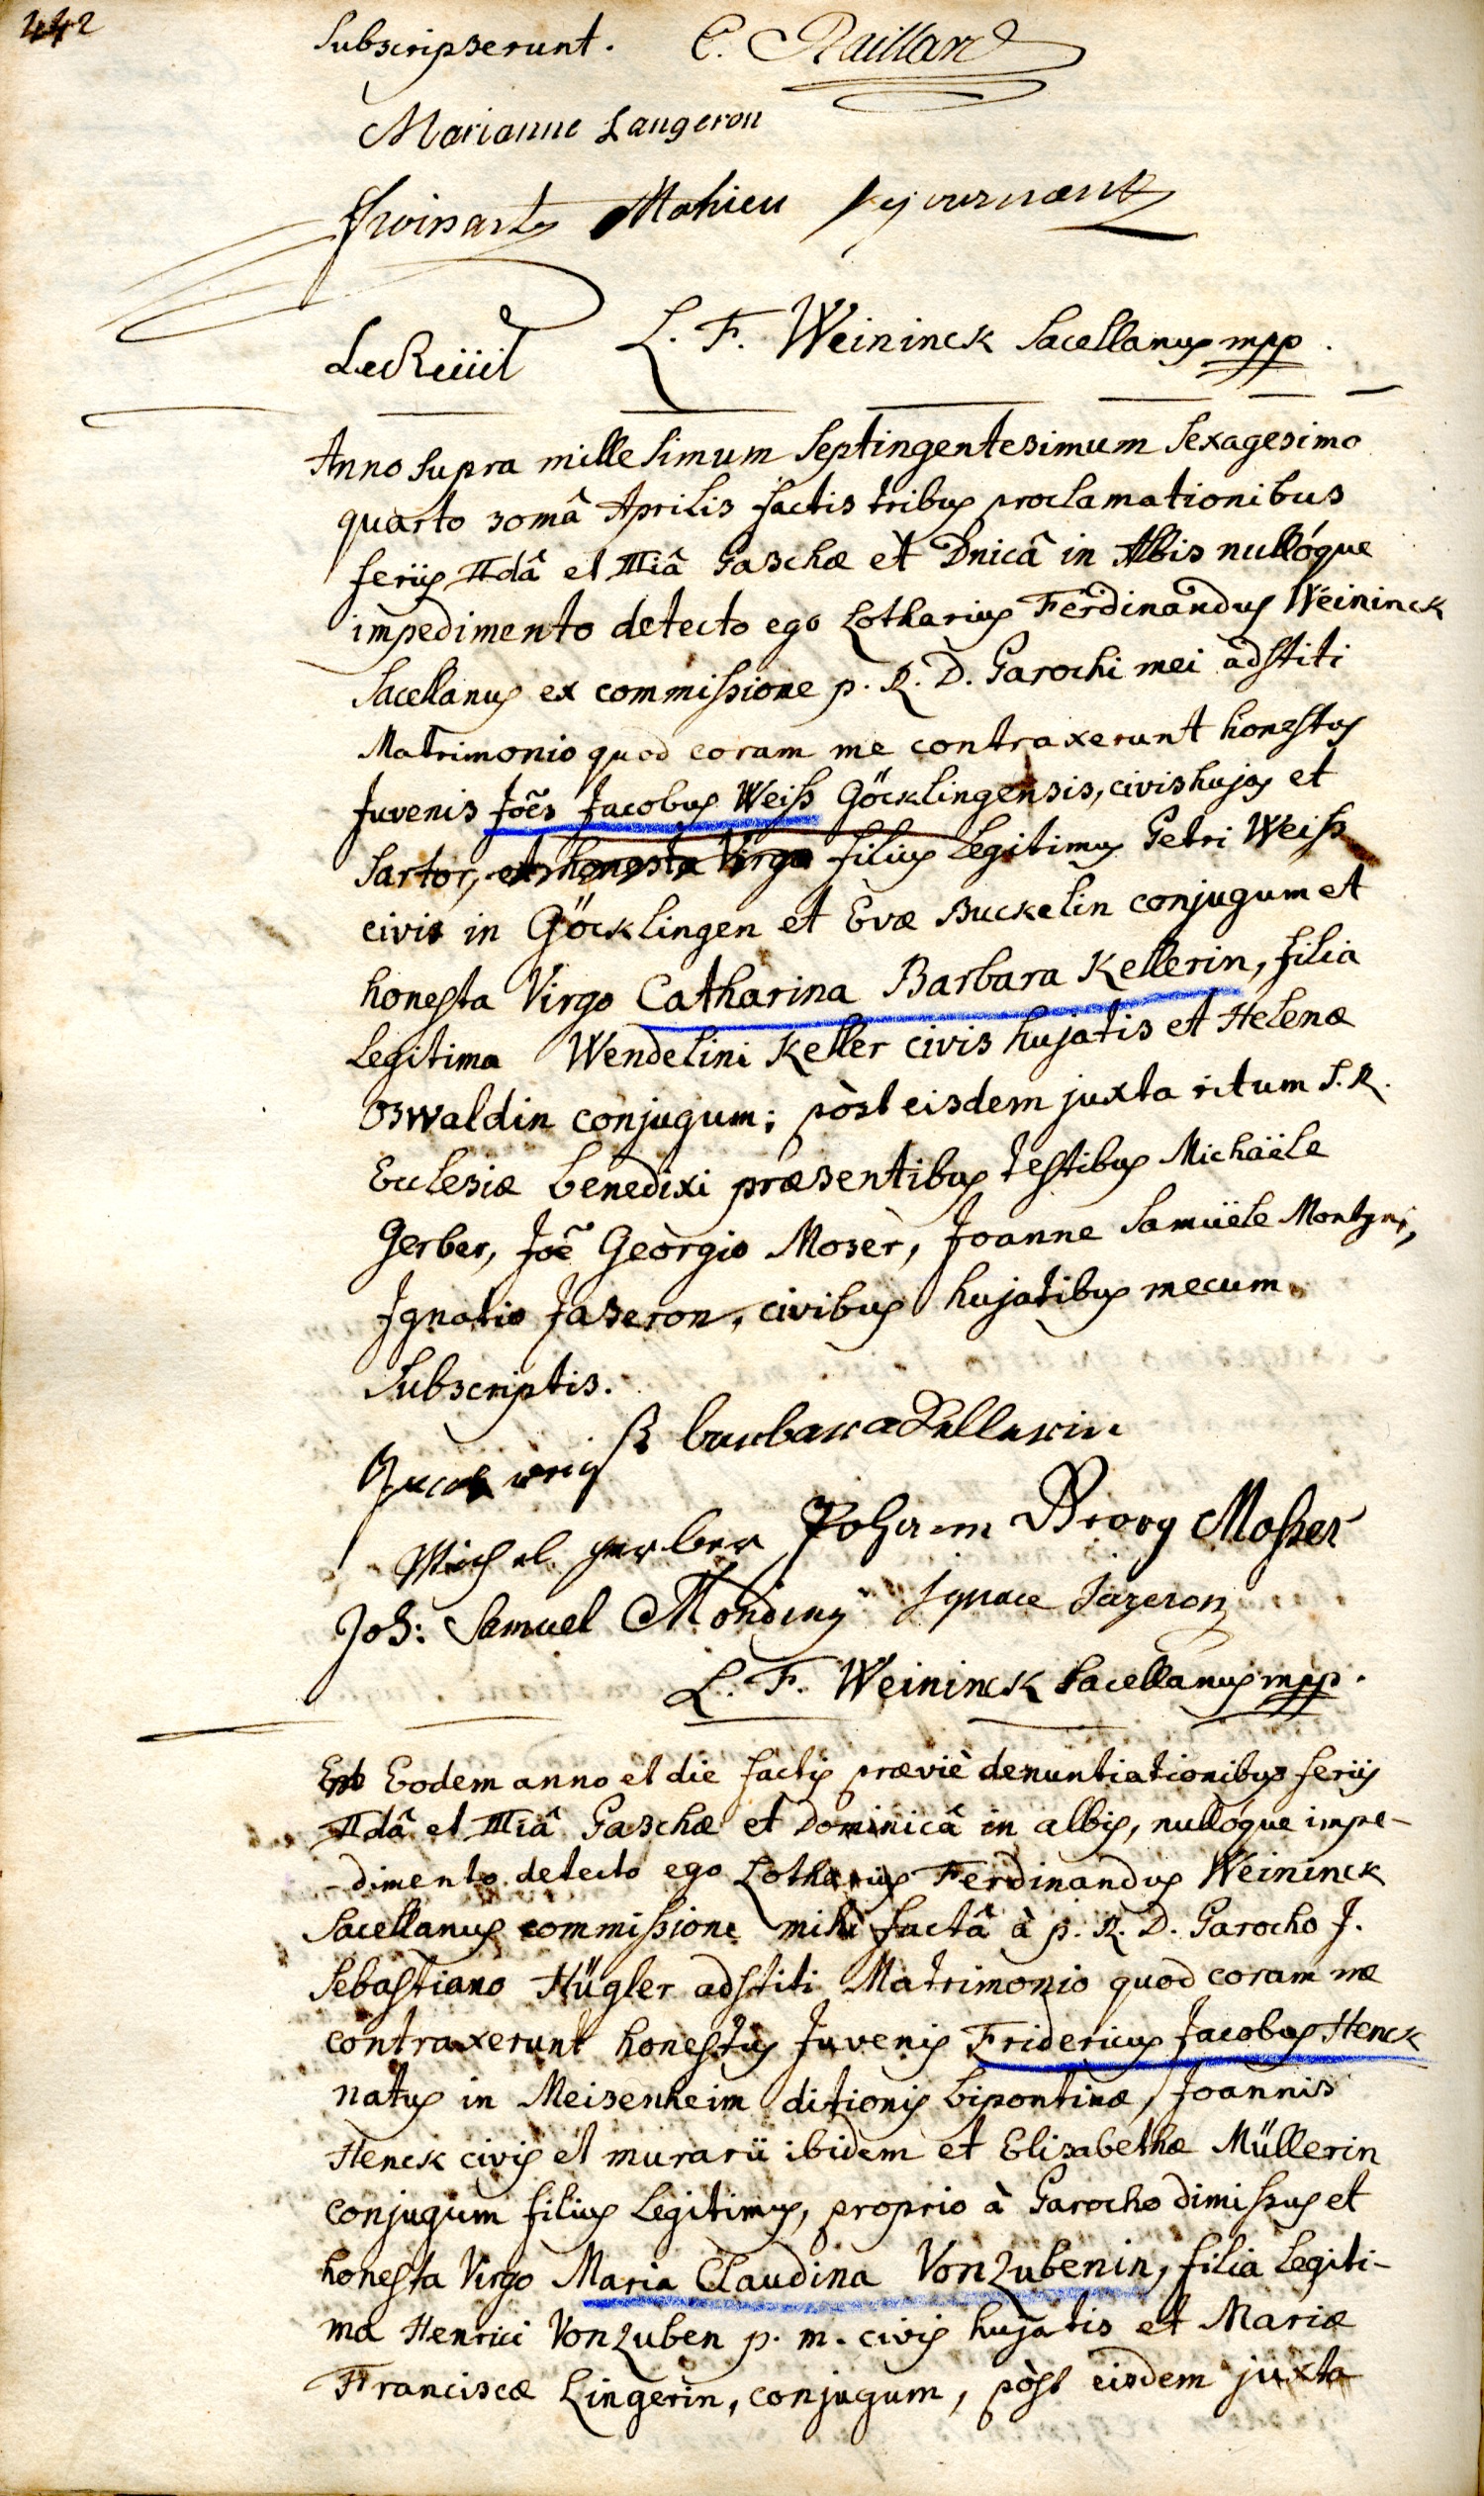 442
Subscripserunt. C. Raillard
Marianne Langeron
Froinart Mahieu
L. F. Weininck Sacellanus mpp.
Anno supra millesimum septingentesimum sexagesimo
quarto 30mâ Aprilis factis tribus proclamationibus
feriis IIdâ et IIIiâ Paschæ et Dnicâ in Albis nullóque
impedimento detecto ego Lotharius Ferdinandus Weininck
Sacellanus ex commissione p. R. D. Parochi mei adstiti
Matrimonio quod coram me contraxerunt honestus
Juvenis Joẽs Jacobus Weiss Göcklingensis, civis hujas et
Sartor, et honesta Virgo filius Legitimus Petri Weiss
civis in Göcklingen et Evæ Buckelin conjugum et
honesta Virgo Catharina Barbara Kellerin, filia
legitima Wendelini Keller civis hujatis et Helenæ
Oswaldin conjugum; pòst eisdem juxta ritum S. R.
Ecclesiæ benedixi præsentibus testibus Michaële
Gerber, Joẽ Geòrgio Moser, Joanne Samuële Montgni,
Ignatio Jaseron, civibus hujatibus mecum
Subscriptis.
Jacob weiß barbara Kellerin
Michel gerber Johann Georg Moßer
Joh: Samuel Mondeny Ignace Jazeron
L. F. Weininck Sacellanus mpp.
Eodem anno et die factis præviè denuntiationibus feriis
IIdâ et IIIiâ Paschæ et Dominicâ in albis, nullóque impe-
-dimento detecto ego Lotharius Ferdinandus Weininck
Sacellanus commissione mihi factâ à p. R. D. Parocho J.
Sebastiano Hügler adstiti Matrimonio quod coram me
contraxerunt honestus Juvenis Fridericus Jacobus Henck
natus in Meisenheim ditionis bipontinæ, Joannis
Henck civis et murarii ibidem et Elisabethæ Müllerin
conjugum filius Legitimus, proprio à Parocho dimissus et
honesta Virgo Maria Claudina Vonzubenin, filia legiti-
ma Henrici Vonzuben p. m. civis hujatis et Mariæ
Franciscæ Lingerin, conjugum, pòst eisdem juxta